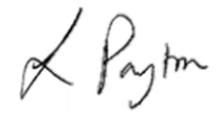 L Payton